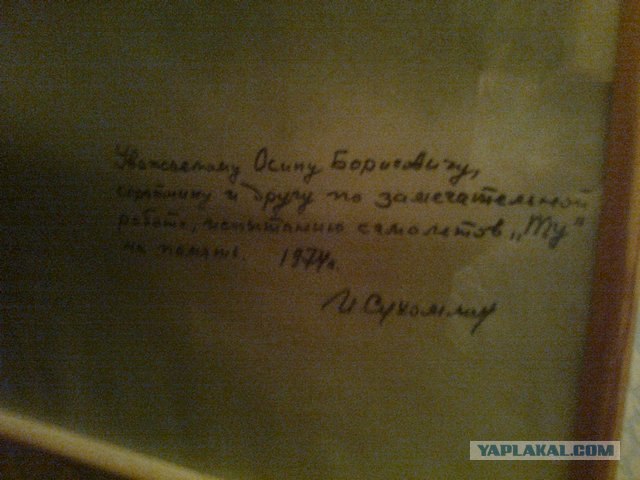 Уважаемому Осипу Борисовичу,
и другу по замечательной
работе, испытанию самолетов „Ту"
на память. 1974г.
И Сухомлин
YAPLAKAL.COM